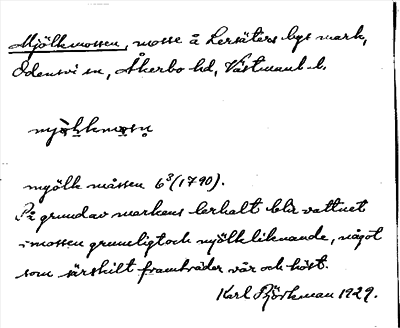 Mjölkmossen, mosse å Lersäters bys mark,
Odensvi sn, Åkerbo hd, Västmanl. l.
mjölk måssen 6³(1790).
På grund av markens lerhalt blir vattnet
i mossen grumligt och mjölkliknande, något
som särskilt framträder vår och höst.
Karl Björkman 1929.